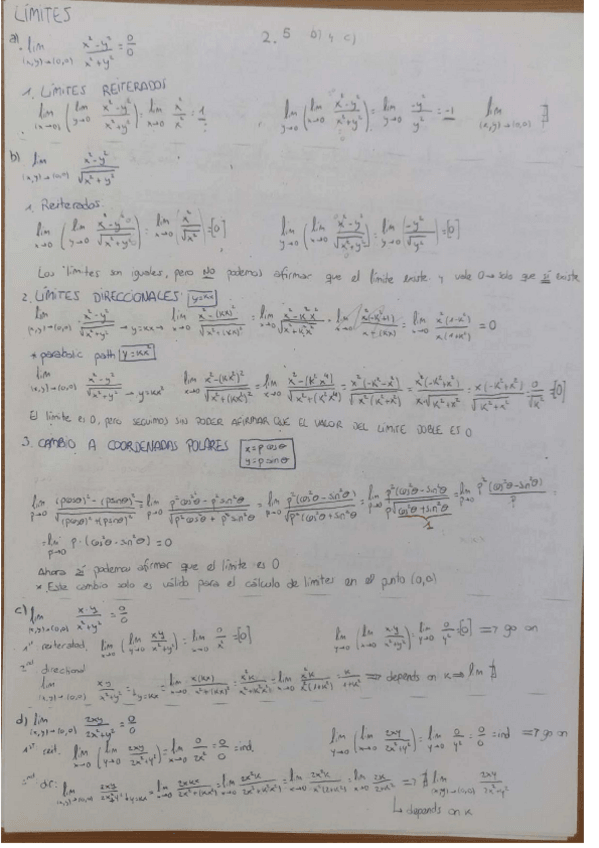 LÍMITES
2.5 b) y c)
a). lim (x,y)→(0,0) x²-y² / x²+y² = 0/0
1. LÍMITES REITERADOS
lim x→0 (lim y→0 x²-y² / x²+y²) = lim x→0 x²/x² = 1 , lim y→0 (lim x→0 x²-y² / x²+y²) = lim y→0 -y²/y² = -1 lim (x,y)→(0,0) ∄
b) lim (x,y)→(0,0) x²-y² / √x²+y²
1. Reiterados.
lim x→0 (lim y→0 x²-y² / √x²+y²) = lim x→0 (x²/√x²) = [0] lim y→0 (lim x→0 x²-y² / √x²+y²) = lim y→0 (-y²/√y²) = [0]
Los límites son iguales, pero NO podemos afirmar que el límite existe y vale 0 → solo que sí existe
2. LÍMITES DIRECCIONALES y=kx
lim (x,y)→(0,0) x²-y² / √x²+y² → y=kx → lim x→0 x²-(kx)² / √x²+(kx)² = lim x→0 x²-k²x² / √x²+k²x² = lim x→0 = lim x→0 x²(1-k²) / x(1+k²) = 0
* parabolic path y=kx²
lim (x,y)→(0,0) x²-y² / √x²+y² → y=kx² lim x→0 x²-(kx²)² / √x²+(kx²)² = lim x→0 x²-(k²x⁴) / √x²+(k²x⁴) = = [0]
El límite es 0, pero seguimos sin poder AFIRMAR QUE EL VALOR DEL LÍMITE DOBLE ES 0
3. CAMBIO A COORDENADAS POLARES x=ρcosθ y=ρsinθ
lim ρ→0 (ρcosθ)²-(ρsinθ)² / √(ρcosθ)²+(ρsinθ)² = lim ρ→0 ρ²cos²θ-ρ²sin²θ / √ρ²cos²θ+ρ²sin²θ = lim ρ→0 ρ²(cos²θ-sin²θ) / √ρ²(cos²θ+sin²θ) = lim ρ→0 ρ²(cos²θ-sin²θ) / ρ√cos²θ+sin²θ = lim ρ→0 ρ²(cos²θ-sin²θ) / ρ
1
= lim ρ→0 ρ·(cos²θ-sin²θ) = 0
Ahora sí podemos afirmar que el límite es 0
* Este cambio solo es válido para el cálculo de límites en el punto (0,0)
c) lim (x,y)→(0,0) x·y / x²+y² = 0/0
1st reiterated. lim x→0 (lim y→0 xy / x²+y²) = lim x→0 0/x² = [0] lim y→0 (lim x→0 x·y / x²+y²) = lim y→0 0/y² = [0] => go on
2nd directional
lim (x,y)→(0,0) xy / x²+y² = y=kx = lim x→0 x(kx) / x²+(kx)² = lim x→0 x²k / x²+k²x² = lim x→0 x²k / x²(1+k²) = k / 1+k² => depends on k => lim ∄
d) lim (x,y)→(0,0) 2xy / 2x²+y² = 0/0
1st reit. lim x→0 (lim y→0 2xy / 2x²+y²) = lim x→0 0/2x² = 0/0 = ind. lim y→0 (lim x→0 2xy / 2x²+y²) = lim y→0 0/y² = 0/0 = ind => go on
2nd dir: lim (x,y)→(0,0) 2xy / 2x²+y² y=kx = lim x→0 2xkx / 2x²+(kx)² = lim x→0 2x²k / 2x²+k²x² = lim x→0 2x²k / x²(2+k²) = lim x→0 => ∄ lim (x,y)→(0,0) 2xy / 2x²+y²
↳ depends on k